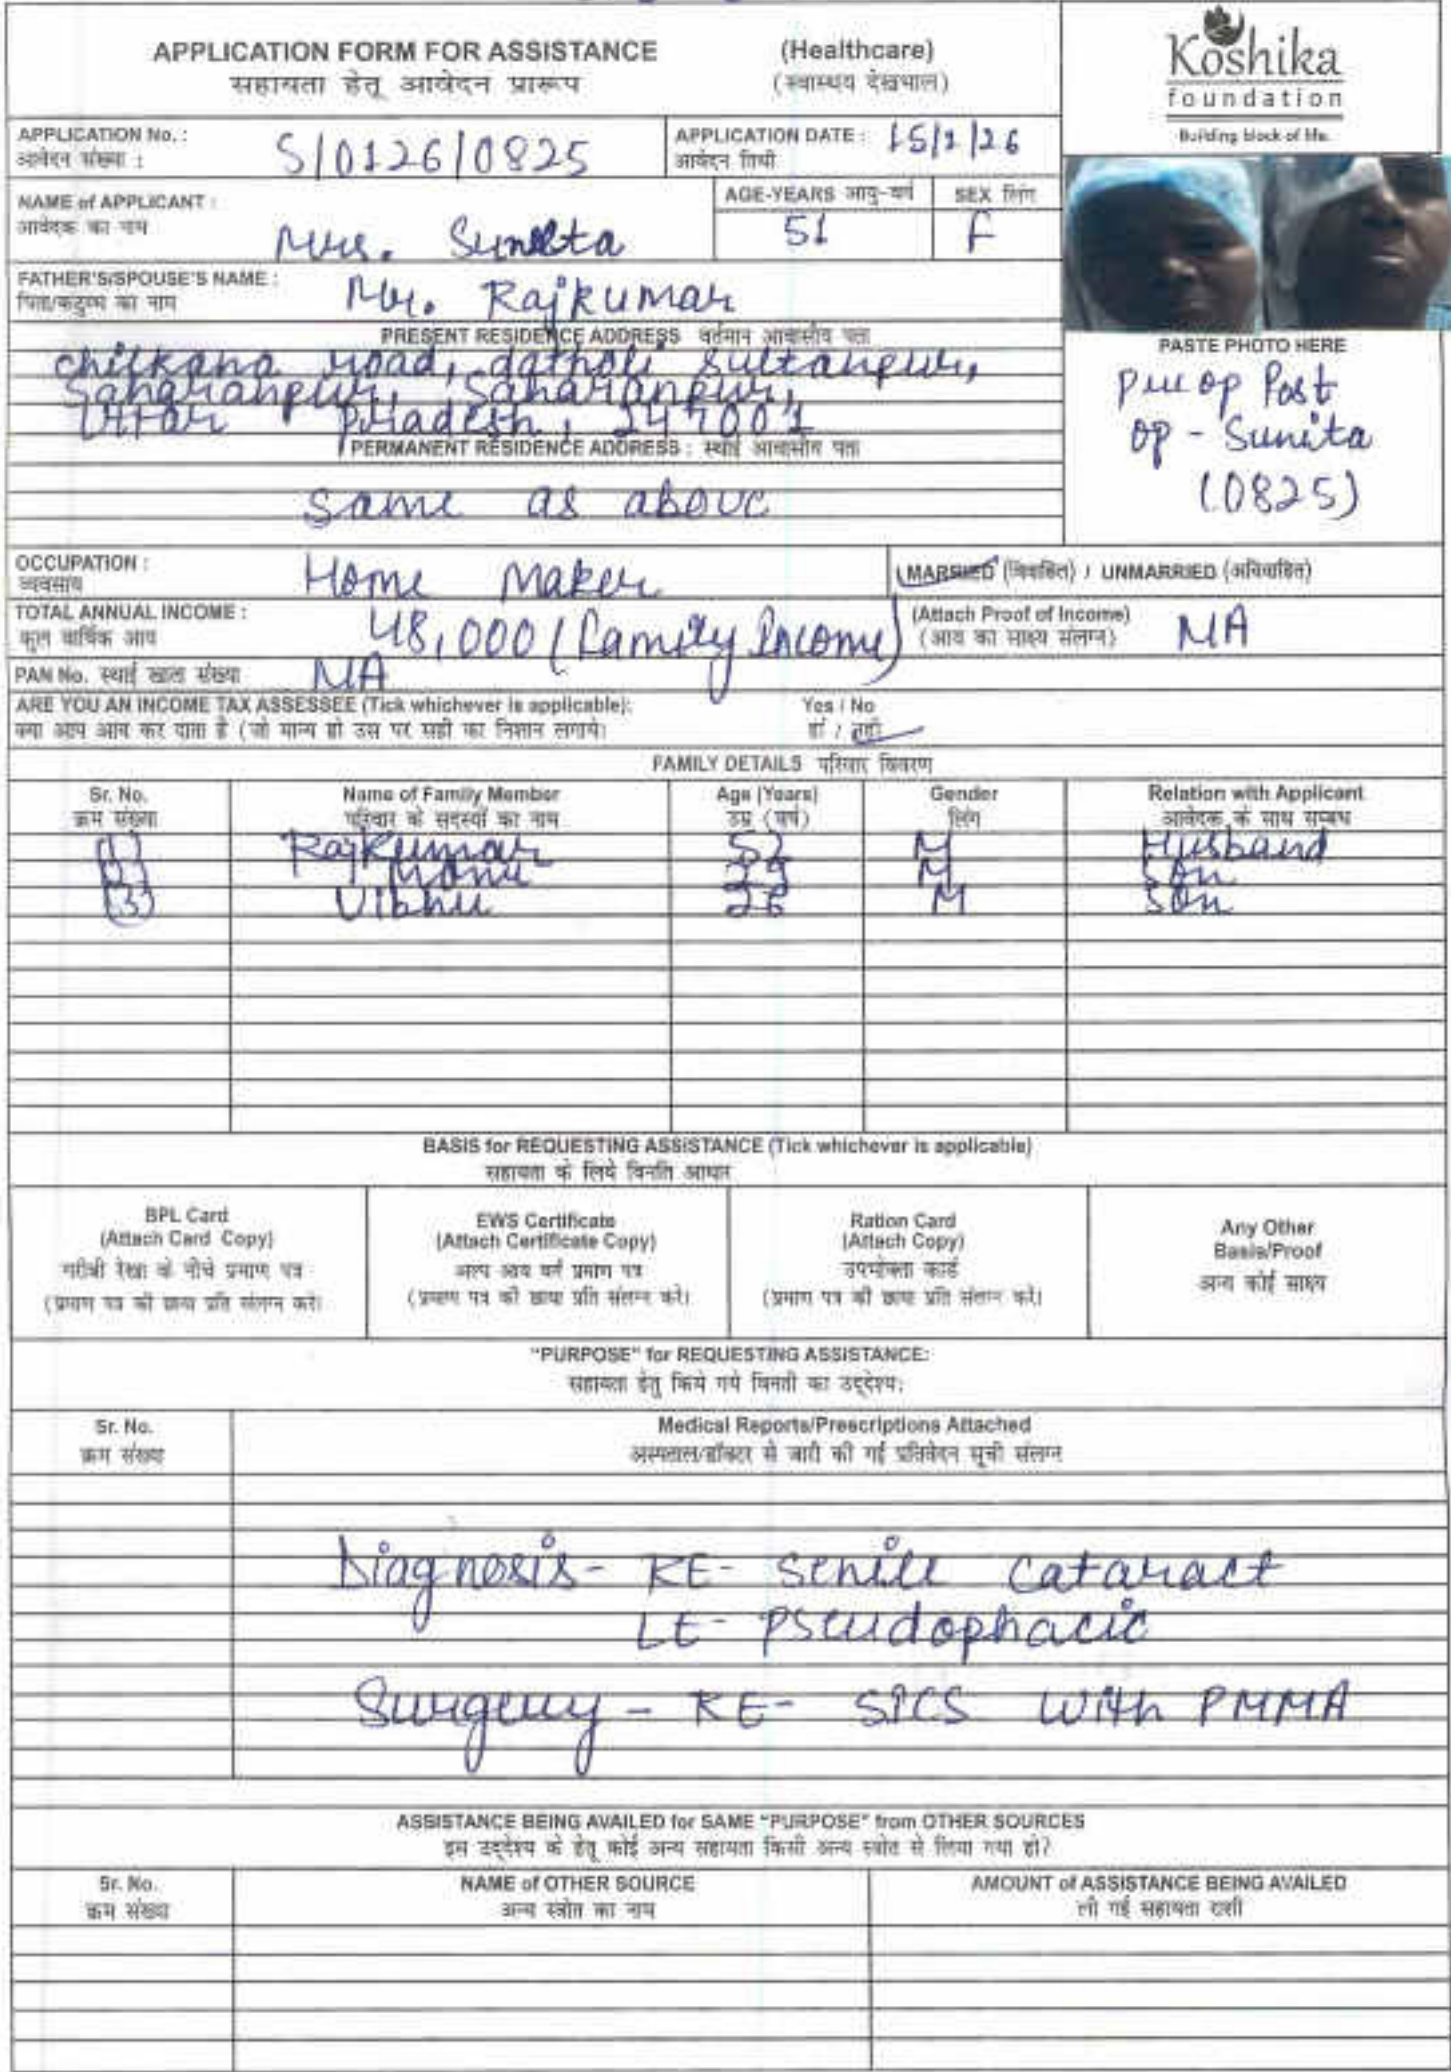 APPLICATION FORM FOR ASSISTANCE (Healthcare)
सहायता हेतू आवेदन प्रारूप (स्वास्थ्य देखभाल)
Koshika
foundation
Building block of life.
APPLICATION No. : S/0126/0825 APPLICATION DATE : 15/1/26
आवेदन संख्या : आवेदन तिथी
NAME of APPLICANT : Mrs. Sunita AGE-YEARS आयु-वर्ष 51 SEX लिंग F
आवेदक का नाम
FATHER'S/SPOUSE'S NAME : Mr. Rajkumar
पिता/कटुम्ब का नाम
PRESENT RESIDENCE ADDRESS वर्तमान आवासीय पता
chilkana road, datholi sultanpur,
Saharanpur, Saharanpur,
Uttar Pradesh, 247001
PERMANENT RESIDENCE ADDRESS : स्थाई आवासीय पता
Same as above
PASTE PHOTO HERE
Pre op Post
op - Sunita
(0825)
OCCUPATION : Home Maker MARRIED (विवाहित) / UNMARRIED (अविवाहित)
व्यवसाय
TOTAL ANNUAL INCOME : 48,000 (Family Income) (Attach Proof of Income) NA
कुल वार्षिक आय (आय का साक्ष्य संलग्न)
PAN No. स्थाई खाता संख्या NA
ARE YOU AN INCOME TAX ASSESSEE (Tick whichever is applicable): Yes / No
क्या आप आय कर दाता है (जो मान्य हो उस पर सही का निशान लगाये। हां / नहीं
FAMILY DETAILS परिवार विवरण
Sr. No. Name of Family Member Age (Years) Gender Relation with Applicant
क्रम संख्या परिवार के सदस्यों का नाम उम्र (वर्ष) लिंग आवेदक के साथ सम्बंध
(1) Rajkumar 52 M Husband
(2) Monu 29 M Son
(3) Vibhu 26 M Son
BASIS for REQUESTING ASSISTANCE (Tick whichever is applicable)
सहायता के लिये विनति आधार
BPL Card
(Attach Card Copy)
गरीबी रेखा के नीचे प्रमाण पत्र
(प्रमाण पत्र की छाया प्रति संलग्न करे।
EWS Certificate
(Attach Certificate Copy)
अल्प आय वर्ग प्रमाण पत्र
(प्रमाण पत्र की छाया प्रति संलग्न करे।
Ration Card
(Attach Copy)
उपभोक्ता कार्ड
(प्रमाण पत्र की छाया प्रति संलग्न करे।
Any Other
Basis/Proof
अन्य कोई साक्ष्य
"PURPOSE" for REQUESTING ASSISTANCE:
सहायता हेतु किये गये विनती का उद्देश्य:
Sr. No. Medical Reports/Prescriptions Attached
क्रम संख्या अस्पताल/डॉक्टर से जारी की गई प्रतिवेदन सूची संलग्न
Diagnosis- RE- Senile Cataract
LE- Pseudophacic
Surgery - RE- SICS with PMMA
ASSISTANCE BEING AVAILED for SAME "PURPOSE" from OTHER SOURCES
इस उद्देश्य के हेतू कोई अन्य सहायता किसी अन्य स्त्रोत से लिया गया हो?
Sr. No. NAME of OTHER SOURCE AMOUNT of ASSISTANCE BEING AVAILED
क्रम संख्या अन्य स्त्रोत का नाम ली गई सहायता राशी